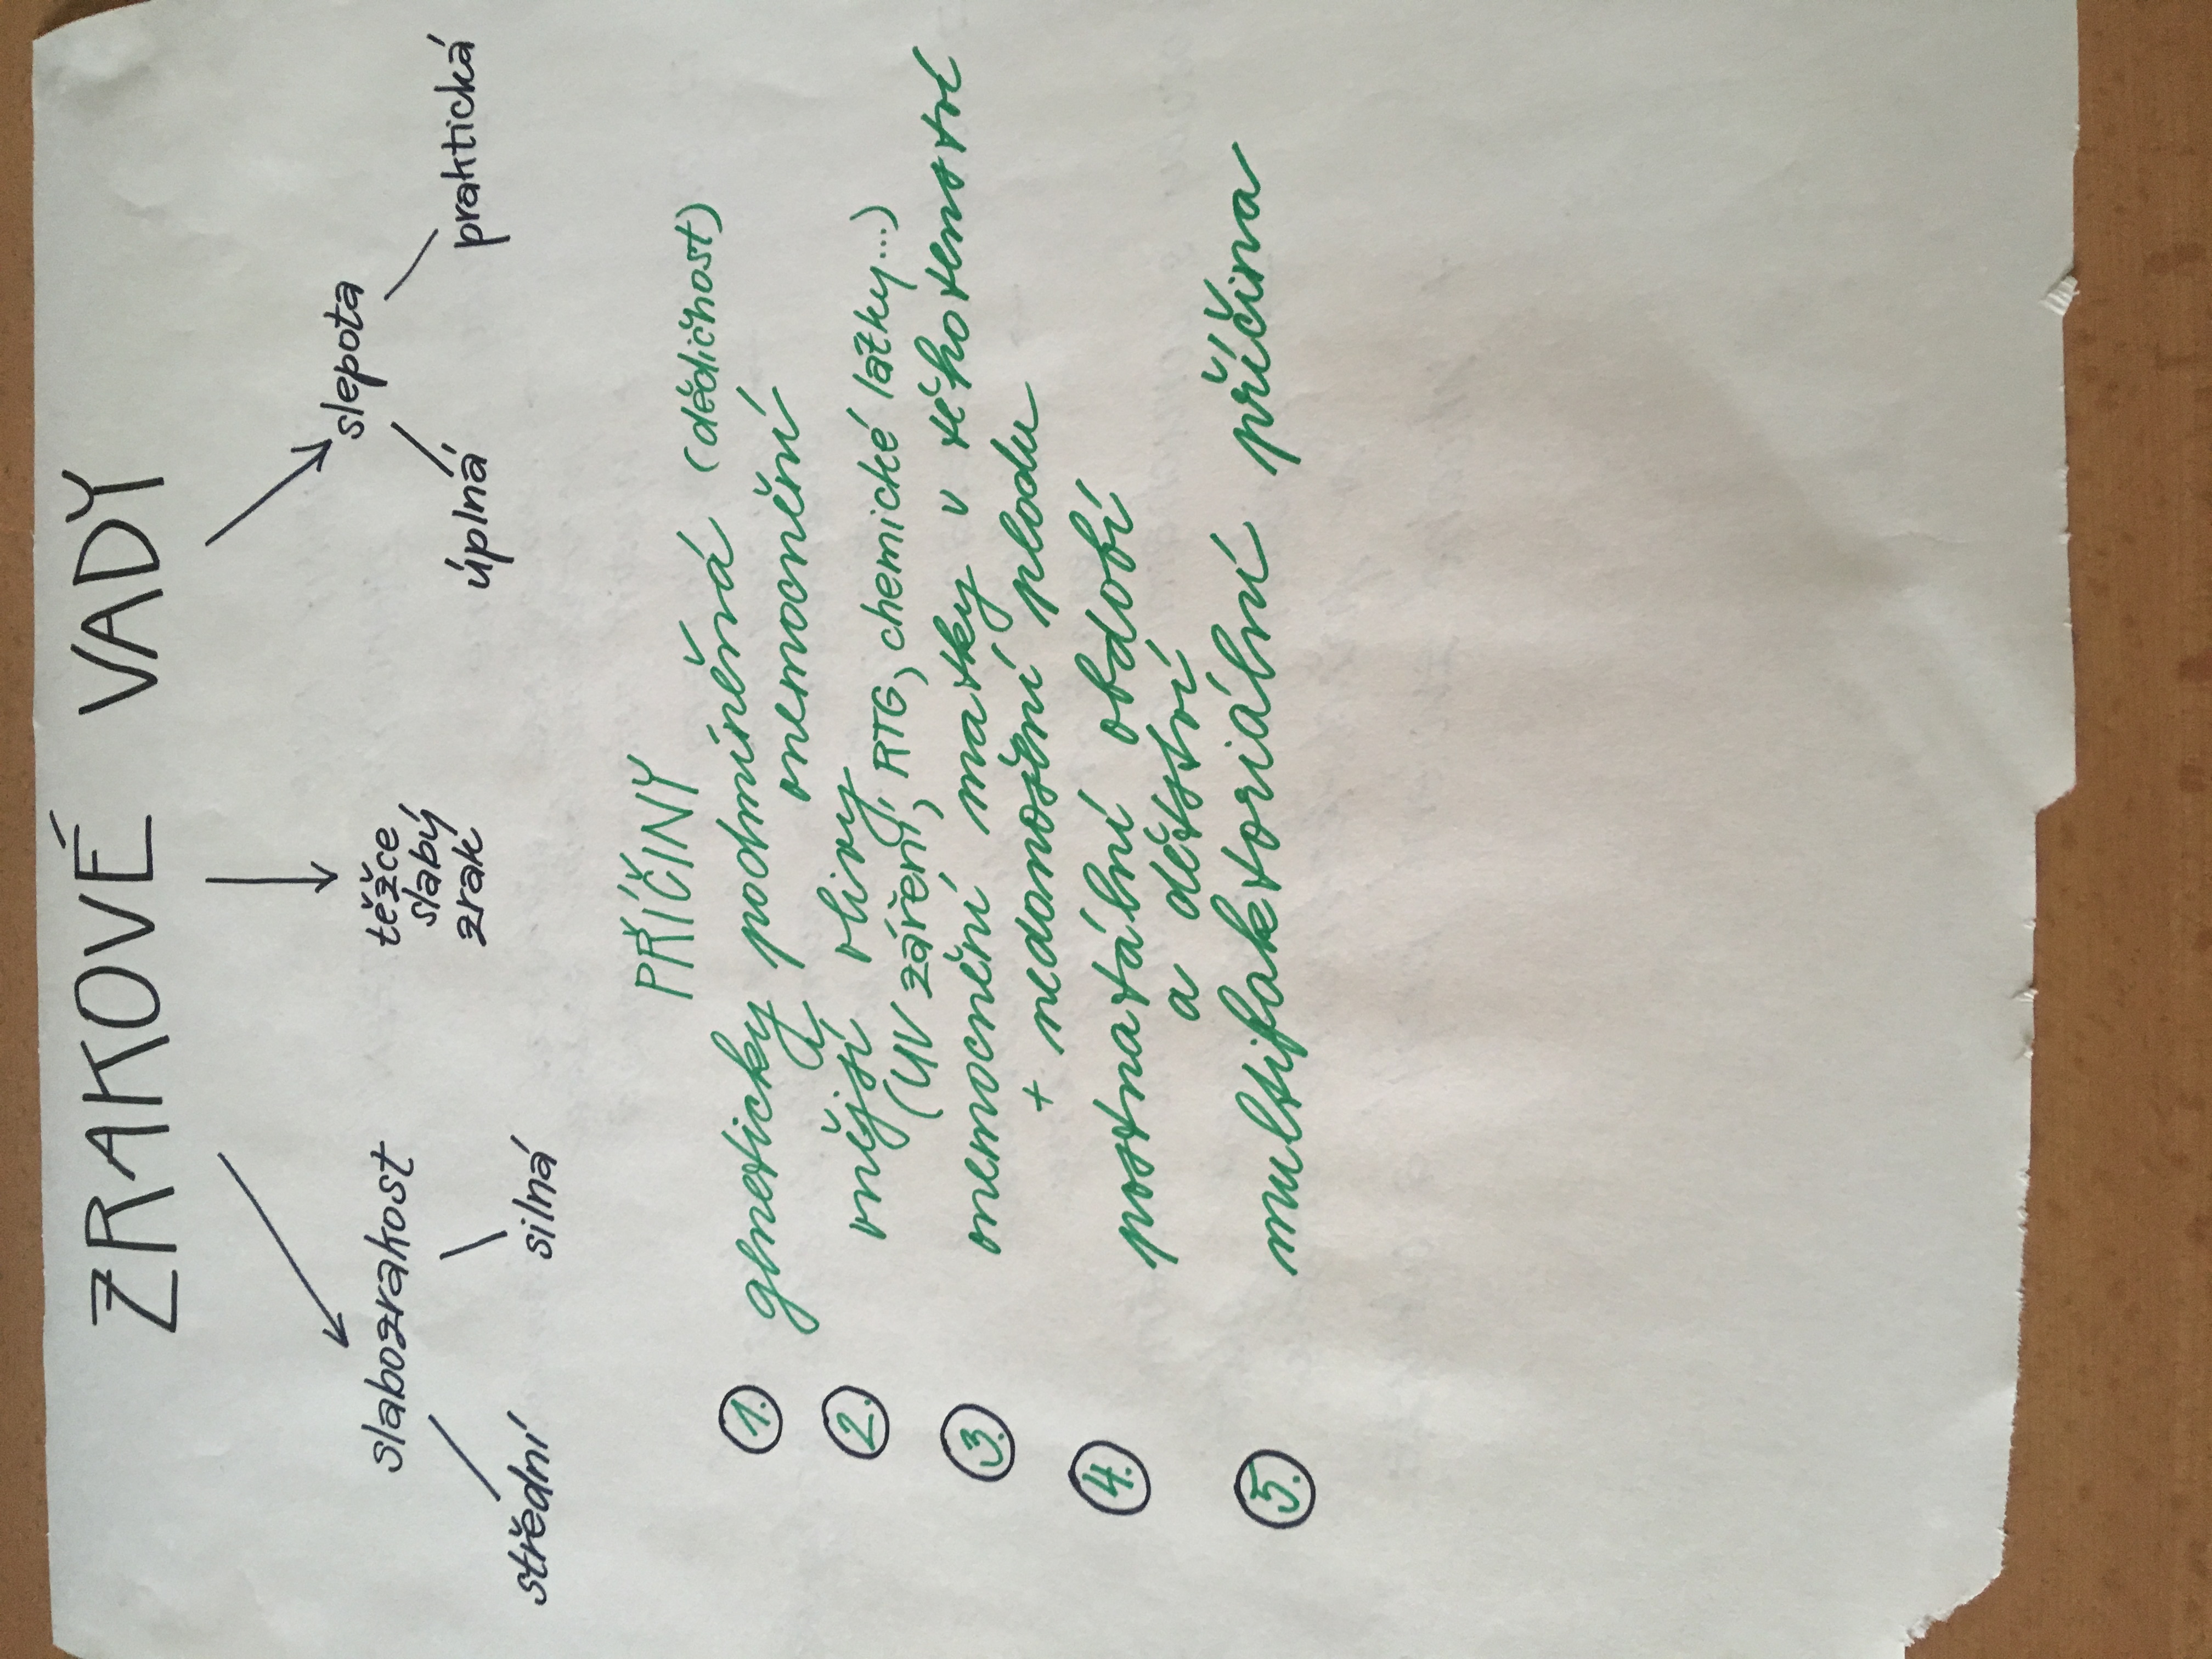 ZRAKOVÉ VADY
slabozrakost
střední
silná
těžce
slabý
zrak
slepota
úplná
praktická
PŘÍČINY
1. geneticky podmíněná (dědičnost)
onemocnění
2. vnější vlivy
(UV záření, RTG, chemické látky...)
3. onemocnění matky v těhotenství
+ nedonošení plodu
4. postnatální období
a dětství
5. multifaktoriální příčina